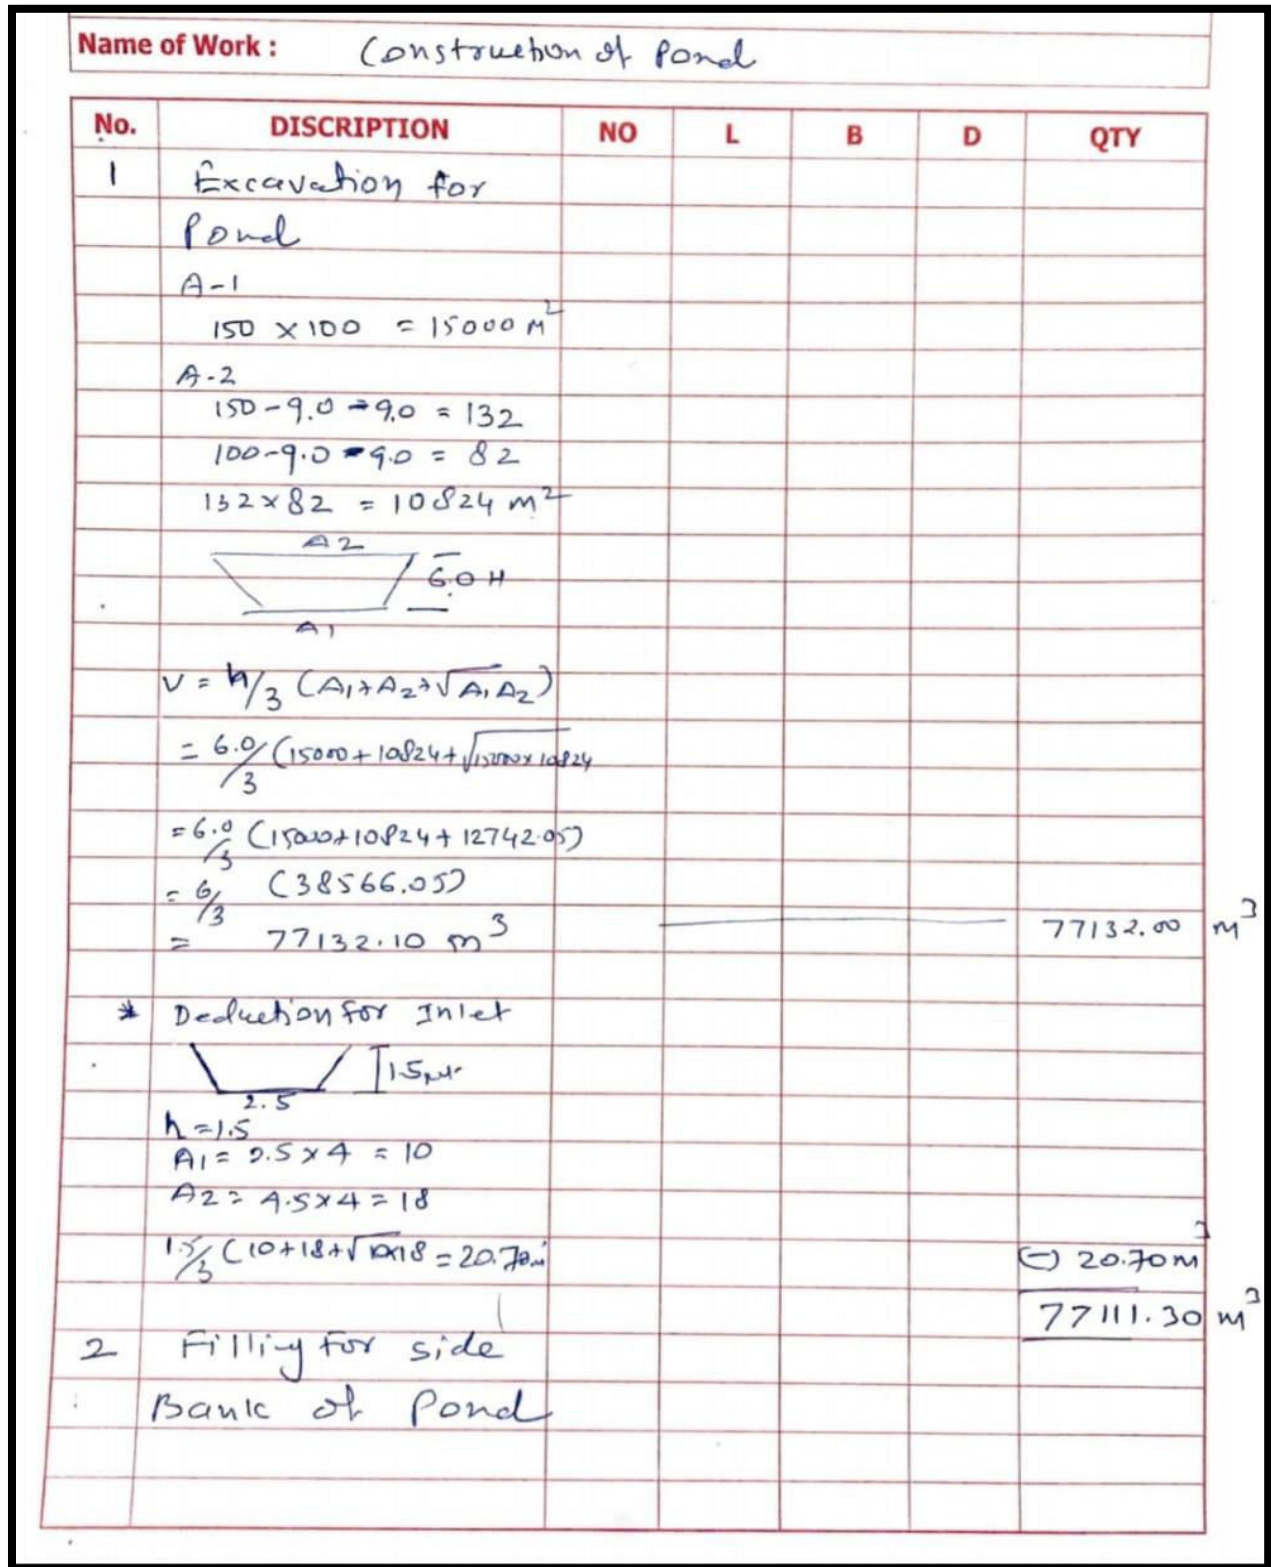 Name of Work : Construction of Pond
No. DISCRIPTION NO L B D QTY
1 Excavation for
Pond
A-1
150 × 100 = 15000 M²
A-2
150-9.0-9.0 = 132
100-9.0-9.0 = 82
132×82 = 10824 m²
A2
6.0 H
A1
V = h/3 (A1+A2+√A1A2)
= 6.0/3 (15000+10824+√15000×10824
= 6.0/3 (15000+10824+12742.05)
= 6/3 (38566.05)
= 77132.10 m³ 77132.00 m³
* Deduction for Inlet
1.5m
2.5
h=1.5
A1= 2.5×4 = 10
A2= 4.5×4=18
1.5/3 (10+18+√10×18 = 20.70m³ (-) 20.70m³
77111.30 m³
2 Filling for side
Bank of Pond